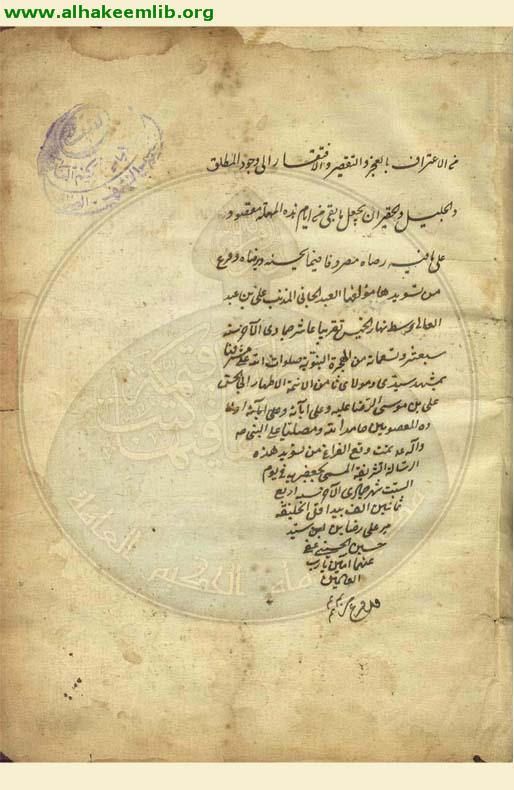 www.alhakeemlib.org
من الاعتراف بالعجز والتقصير والافتقار الى وجود المطلق
والجليل والحقير ان يجعل ما بقى من ايام هذه المهلة معقودة
على ما فيه رضاه مصروفا فيما يحبه ويرضاه وفرغ
من تسويدها مؤلفها العبد الجانى المذنب على بن عبد
العالى وسط نهار الخميس تقريبا عاشر جمادى الآخر سنة
سبعة عشر وتسعمائة من الهجرة النبوية صلوات الله على مشرفها
بمشهد سيدى ومولاى ثامن الائمة الاطهار ابى الحسن
على بن موسى الرضا عليه وعلى آبائه وعلى ابنائه
المعصومين حامدا لله ومصليا على النبى
وآله تمت وقع الفراغ من تسويد هذه
الرسالة الشريفة المسمى بجعفريه فى يوم
السبت شهر جمادى الآخر سنه اربع
ثمانين الف بيد اقل الخليقة
مير على رضا بن سيد
حسين الحسينى عفى
عنهما آمين يا رب
العالمين